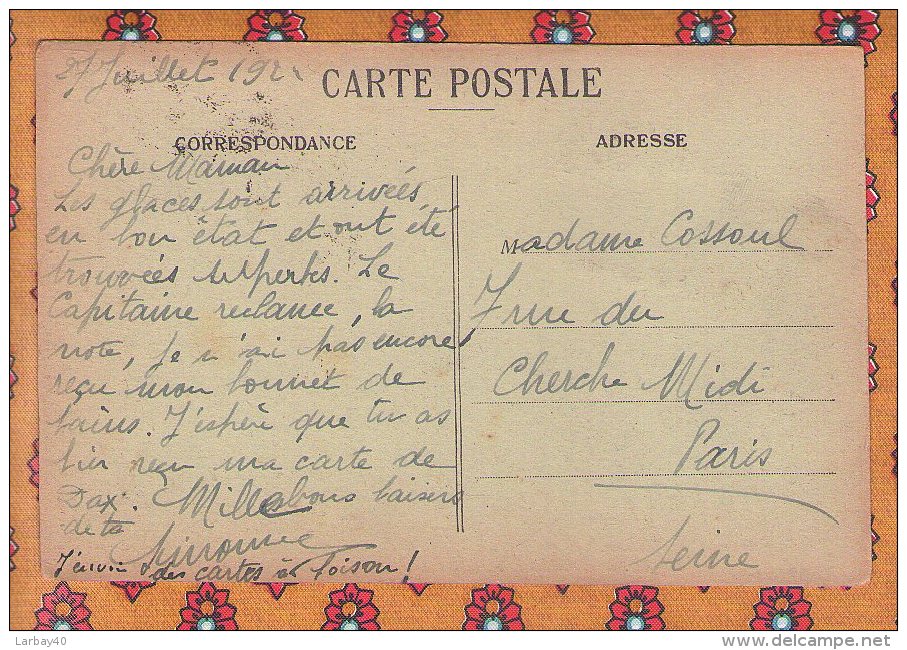 27 Juillet 192
CARTE POSTALE
CORRESPONDANCE
ADRESSE
Chère Maman
Les glaces sont arrivées
en bon état et ont été
trouvées superbes. Le
Capitaine réclame, la
note, Je n'ai pas encore
reçu mon bonnet de
bains. J'espère que tu as
bien reçu ma carte de
Dax. Mille bons baisers
de ta
Simonne
J'envoie des cartes à foison!
Madame Cossoul
7 rue du
Cherche Midi
Paris
Seine
Larbay40
www.delcampe.net